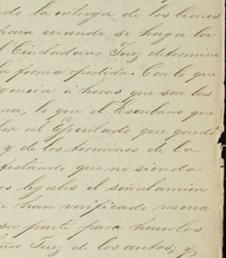 do la entrega de los bienes
para cuando se haga la
l Ciudadano Juez determine
la forma pedida. Con lo que
gencia á horas que son las
na, lo que el Escribano que
el Ejecutado que quedó
y de los terminos de la
festando que no siendo
os legales el señalamien
se han verificado
su parte para
ñor Juez de los autos, y